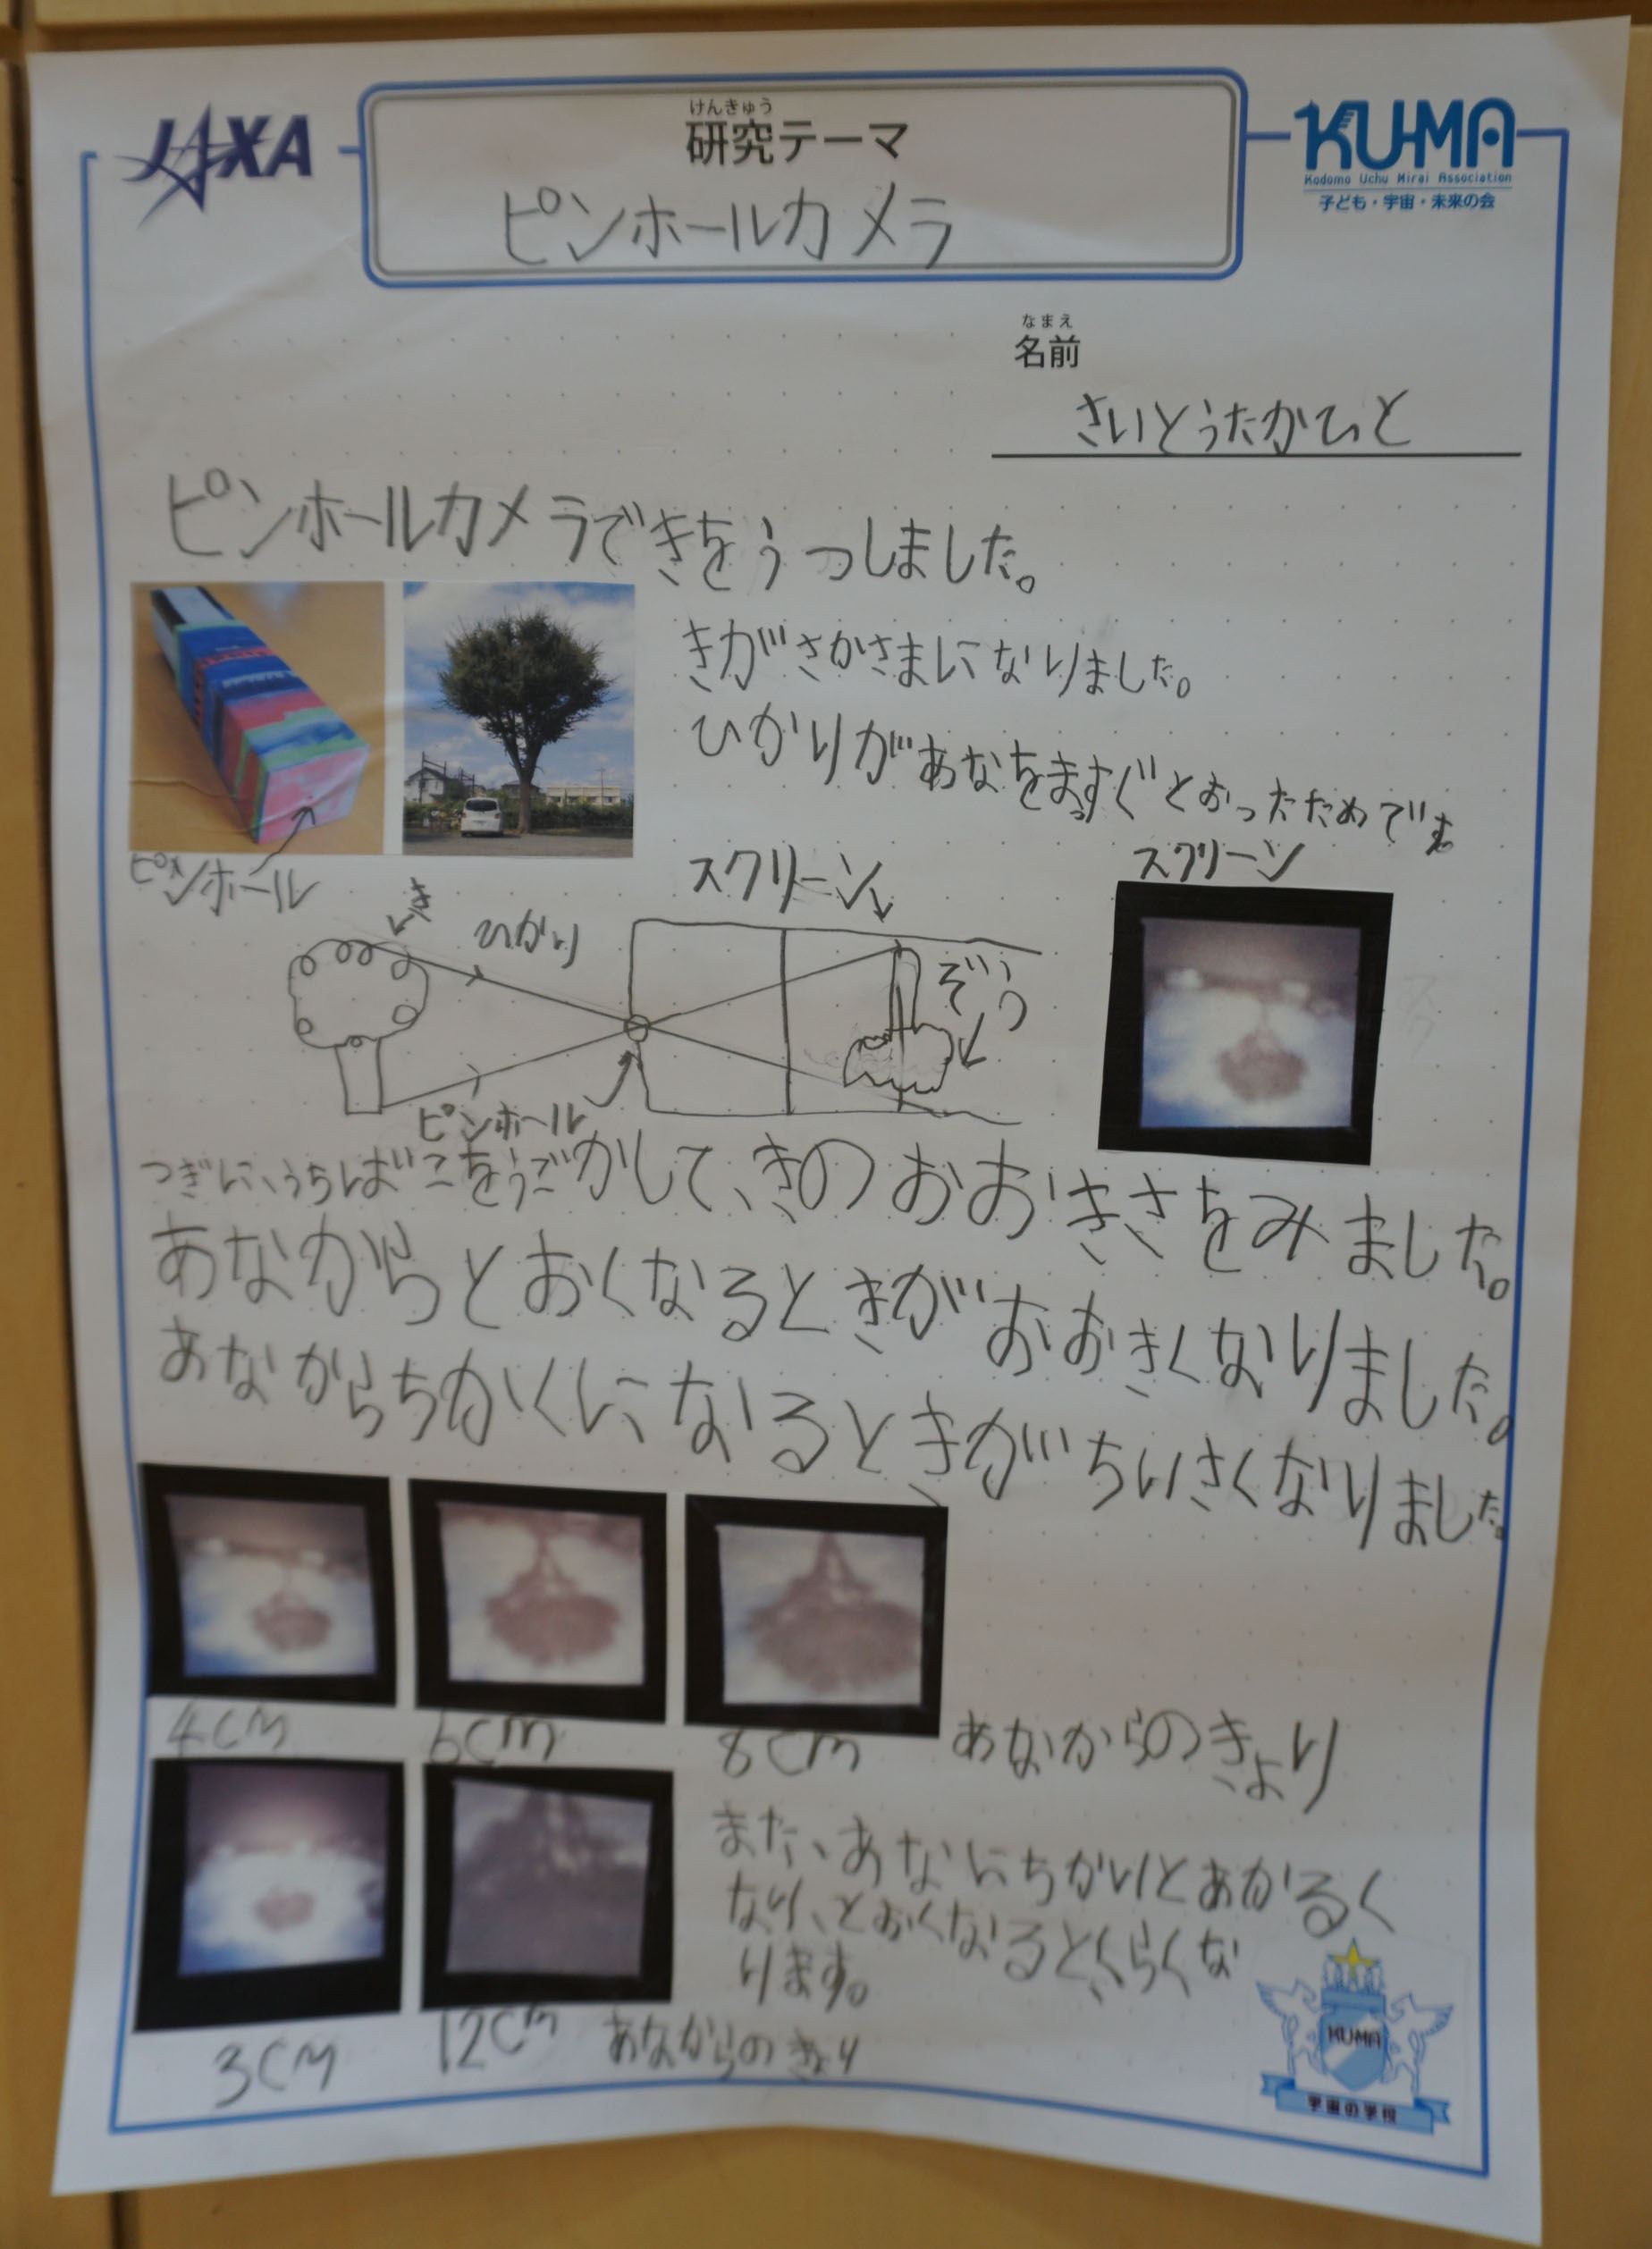 JAXA
けんきゅう
研究テーマ
ピンホールカメラ
KU-MA
Kodomo Uchu Mirai Association
子ども・宇宙・未来の会
なまえ
名前
さいとうたかひと
ピンホールカメラできをうつしました。
きがさかさまになりました。
ひかりがあなをまっすぐとおったためです
ピンホール
スクリーン
スクリーン
き
ひかり
ぞう
ピンホール
つぎに、うちばこをうごかして、きのおおきさをみました。
あなからとおくなるときがおおきくなりました。
あなからちかくになるときがちいさくなりました。
4cm
6cm
8cm
あなからのきょり
また、あなにちかいとあかるく
なり、とおくなるとくらくな
ります。
3cm
12cm
あなからのきょり
KUMA
宇宙の学校